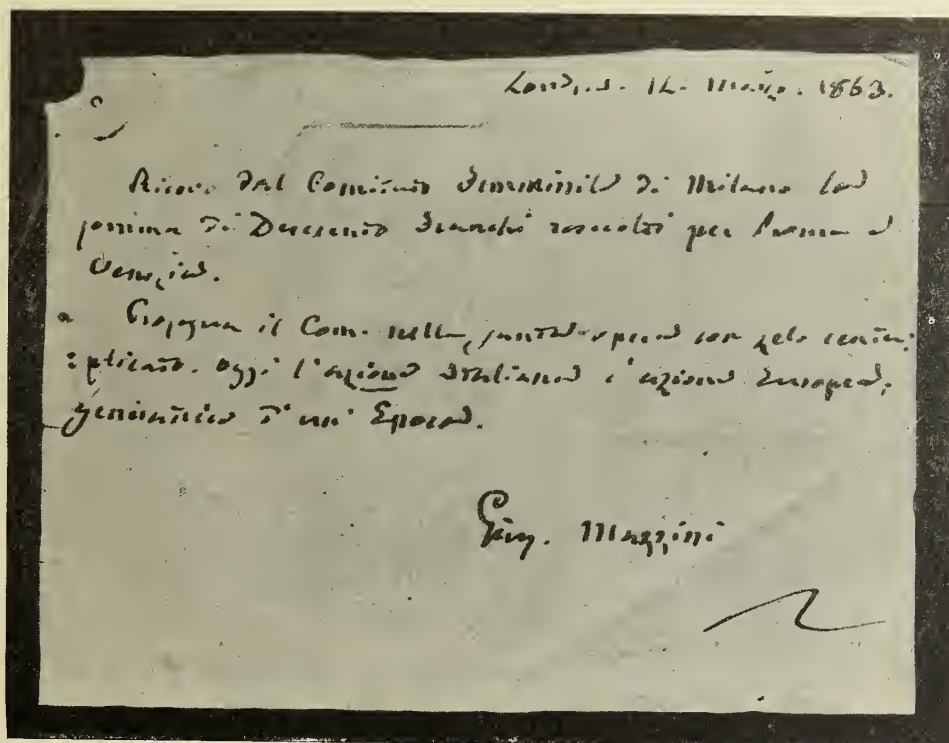 Londra. 12. Marzo. 1863.
Ricevo dal Comitato Femminile di Milano la
somma di Duecento franchi raccolti per Roma e
Venezia.
Prosegua il Com. nella santa opera con zelo centu:
:plicato. Oggi l'azione Italiana è azione Europea,
iniziatrice d'un' Epoca.
Gius. Mazzini